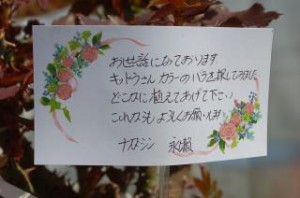 お世話になっております
キットうこん カラーのバラを探してみました
どこかに植えてあげて下さい
これからもよろしくお願いします
ナカシン 永瀬